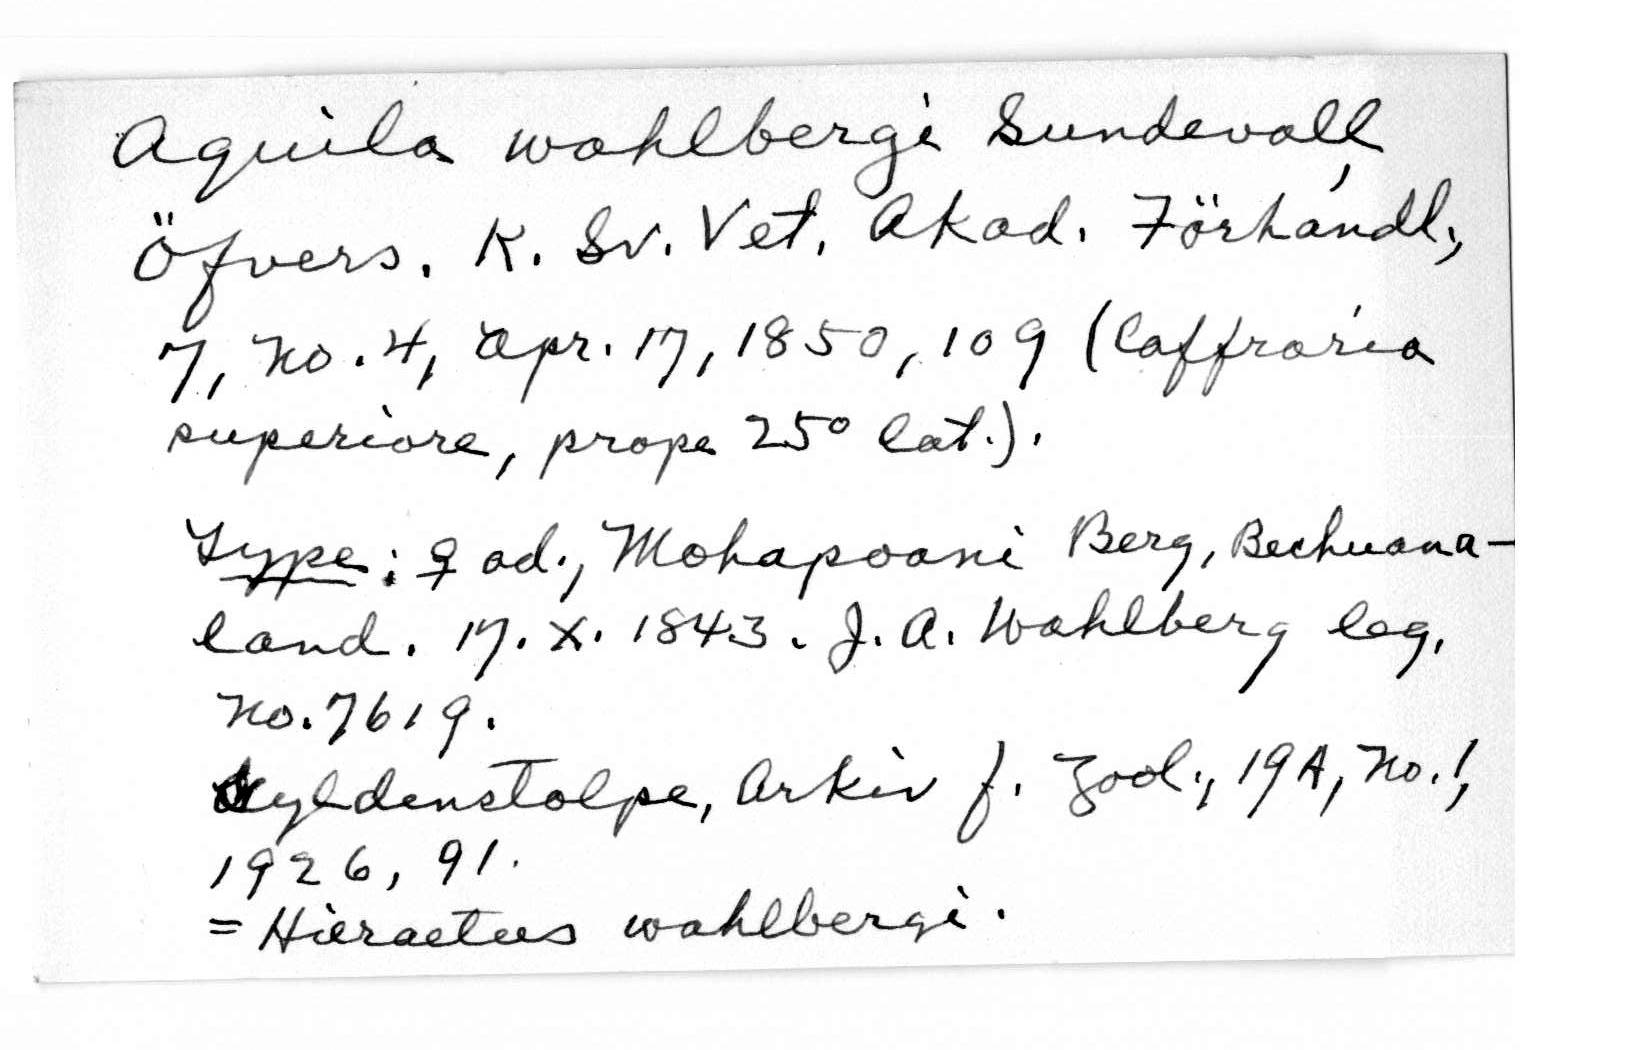 Aquila wahlbergi Sundevall,
Öfvers. K. Sv. Vet. Akad. Förhandl.,
7, No. 4, Apr. 17, 1850, 109 (Caffraria
superiore, prope 25° lat.).
Type: ♀ ad., Mohapoani Berg, Bechuana-
land. 17. X. 1843. J. A. Wahlberg leg.
No. 7619.
Gyldenstolpe, Arkiv f. Zool., 19A, No. 1,
1926, 91.
= Hieraetus wahlbergi.